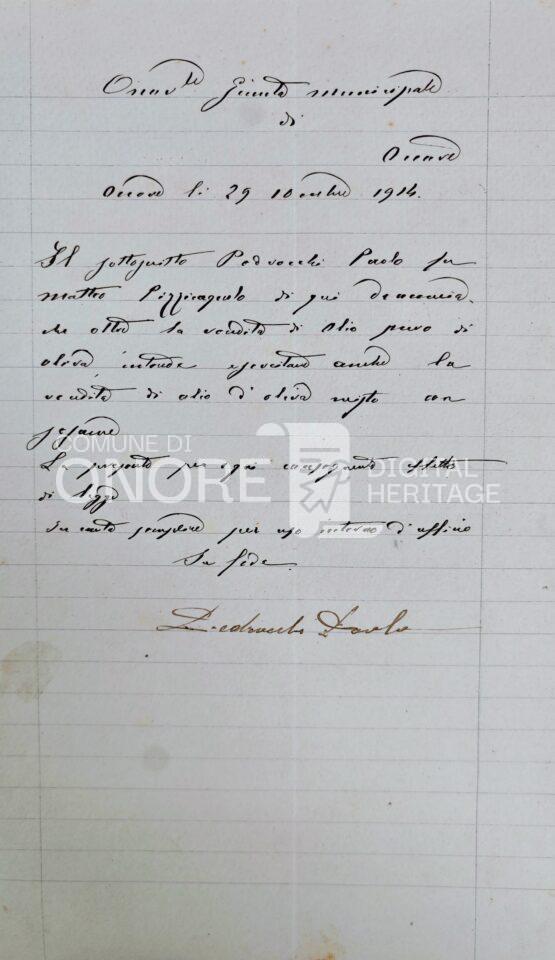 Onor.le Giunta municipale
di
Onore
Onore li 29 10embre 1914.
Il sottoscritto Pedrocchi Paolo fu
Matteo Pizzicagnolo di qui denuncia
che oltre la vendita di olio puro di
oliva, intende esercitare anche la
vendita di olio d'oliva misto con
sesame
La presente per ogni conseguente effetto
di legge
In carta semplice per uso interno d'ufficio
In fede.
Pedrocchi Paolo
COMUNE DI
ONORE
DIGITAL
HERITAGE